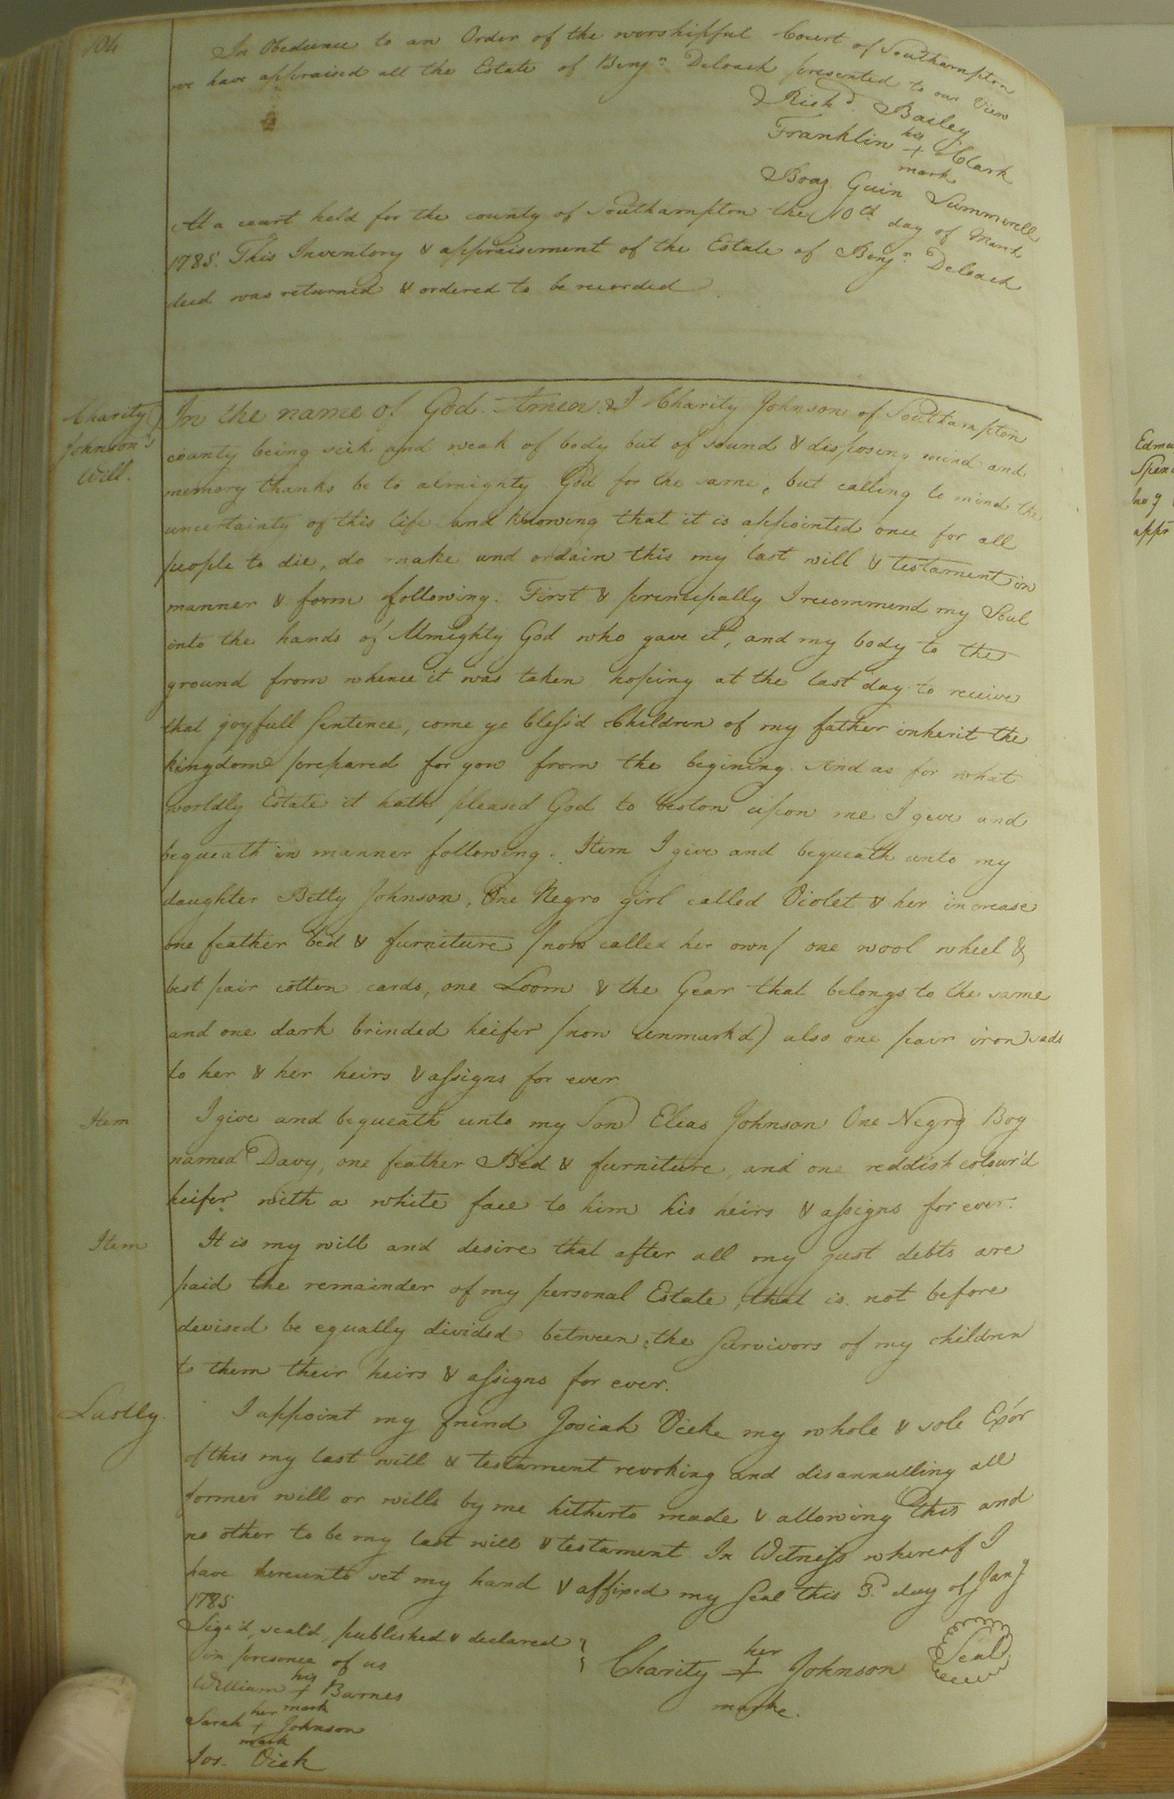 104
In Obedience to an Order of the worshipful Court of Southampton
we have appraised all the Estate of Benjn. Deloach presented to our View
Richd. Bailey
Franklin his + Clark
mark
Boaz Guin Summerell
At a court held for the county of Southampton the 10th day of March
1785. This Inventory & appraisement of the Estate of Benjn. Deloach
decd was returned & ordered to be recorded
Charity
Johnson's
Will.
In the name of God. Amen. I Charity Johnson of Southampton
county being sick and weak of body but of sound & disposing mind and
memory thanks be to almighty God for the same, but calling to mind the
uncertainty of this life and knowing that it is appointed once for all
people to die, do make and ordain this my last will & testament in
manner & form following. First & principally I recommend my Soul
into the hands of Almighty God who gave it, and my body to the
ground from whence it was taken hoping at the last day to receive
that joyfull Sentence, come ye bless'd Children of my father inherit the
kingdom prepared for you from the begining. And as for what
worldly Estate it hath pleased God to bestow upon me I give and
bequeath in manner following. Item I give and bequeath unto my
daughter Betty Johnson, One Negro girl called Violet & her increase
one feather bed & furniture (now called her own) one wool wheel &
best pair cotton cards, one Loom & the Gear that belongs to the same
and one dark brinded heifer (now unmarkd) also one pair iron
to her & her heirs & assigns for ever
Item
I give and bequeath unto my Son Elias Johnson One Negro Boy
named Davy, one feather Bed & furniture, and one reddish colour'd
heifer with a white face to him his heirs & assigns for ever.
Item
It is my will and desire that after all my just debts are
paid the remainder of my personal Estate, that is not before
devised be equally divided between the survivors of my children
to them their heirs & assigns for ever.
Lastly
I appoint my friend Josiah Vick my whole & sole Exor
of this my last will & testament revoking and disannulling all
former will or wills by me hitherto made & allowing this and
no other to be my last will & testament In Witness whereof I
have hereunto set my hand & affixed my Seal this 3d day of Jany
1785
Sign'd, seal'd, published & declared
in presence of us
William his + Barnes
mark
Sarah her + Johnson
mark
Jos. Vick
Charity her + Johnson
marke.
Seal
Edmu